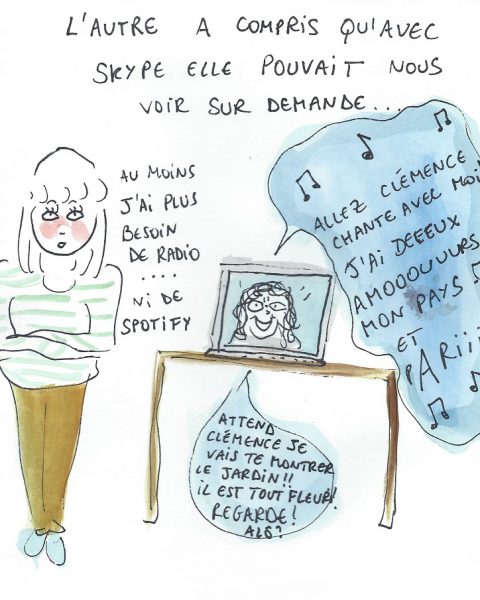 L'AUTRE A COMPRIS QU'AVEC
SKYPE ELLE POUVAIT NOUS
VOIR SUR DEMANDE...
AU MOINS
J'AI PLUS
BESOIN
DE RADIO
....
NI DE
SPOTIFY
ALLEZ CLÉMENCE
CHANTE AVEC MOI
J'AI DEEEUX
AMOOOUUURS
MON PAYS
ET
PARiiii
ATTEND
CLÉMENCE JE
VAIS TE MONTRER
LE JARDIN!!
iL EST TOUT FLEURI!
REGARDE!
ALO?